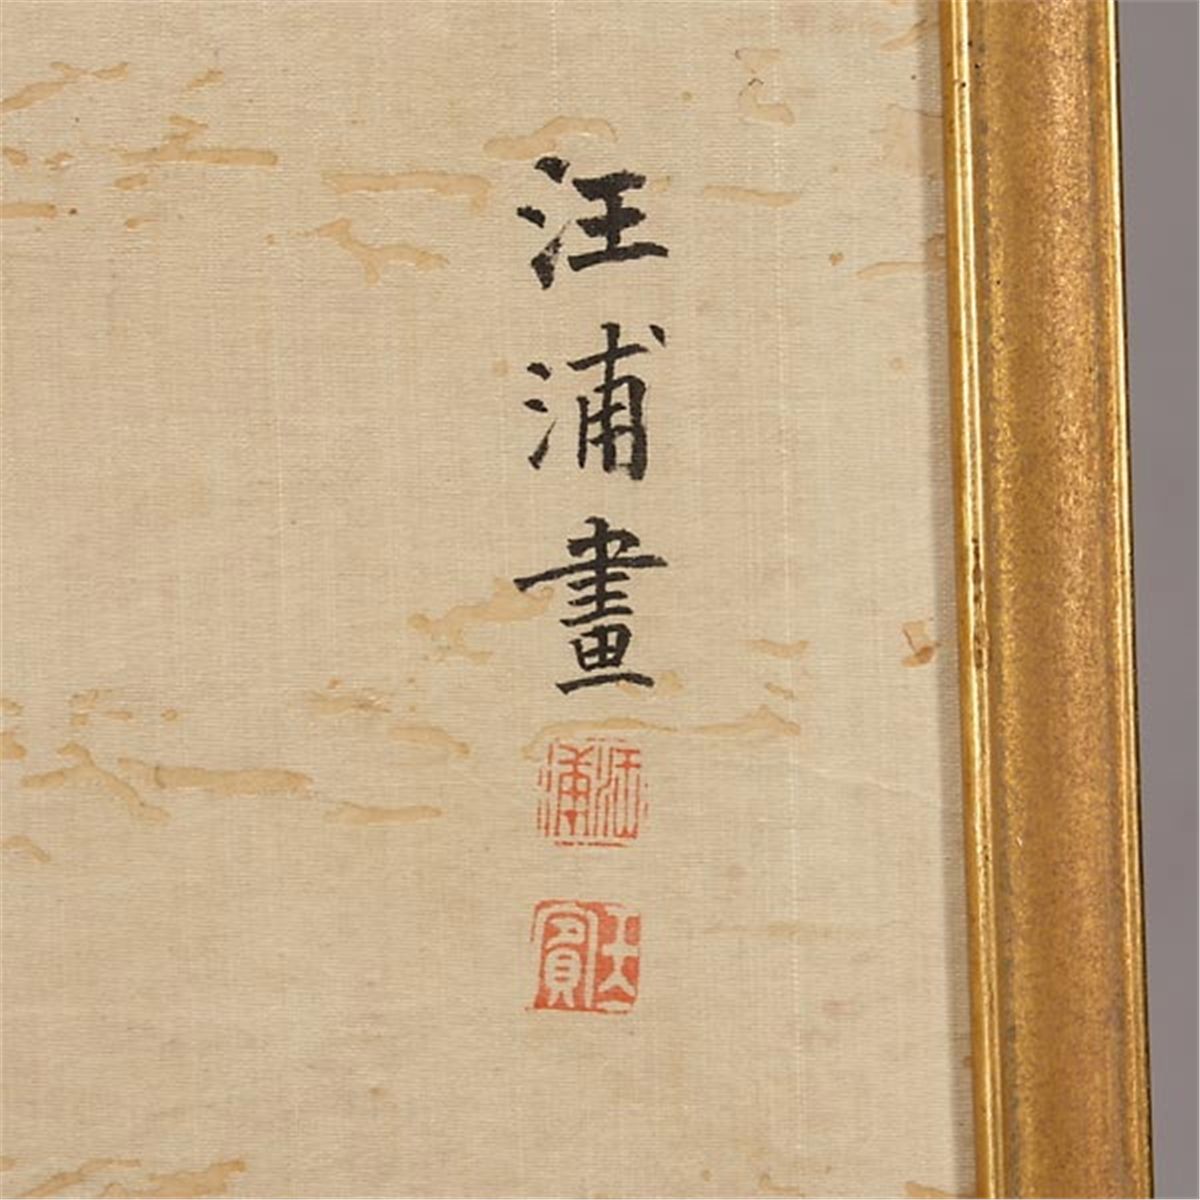 汪浦畫
汪浦